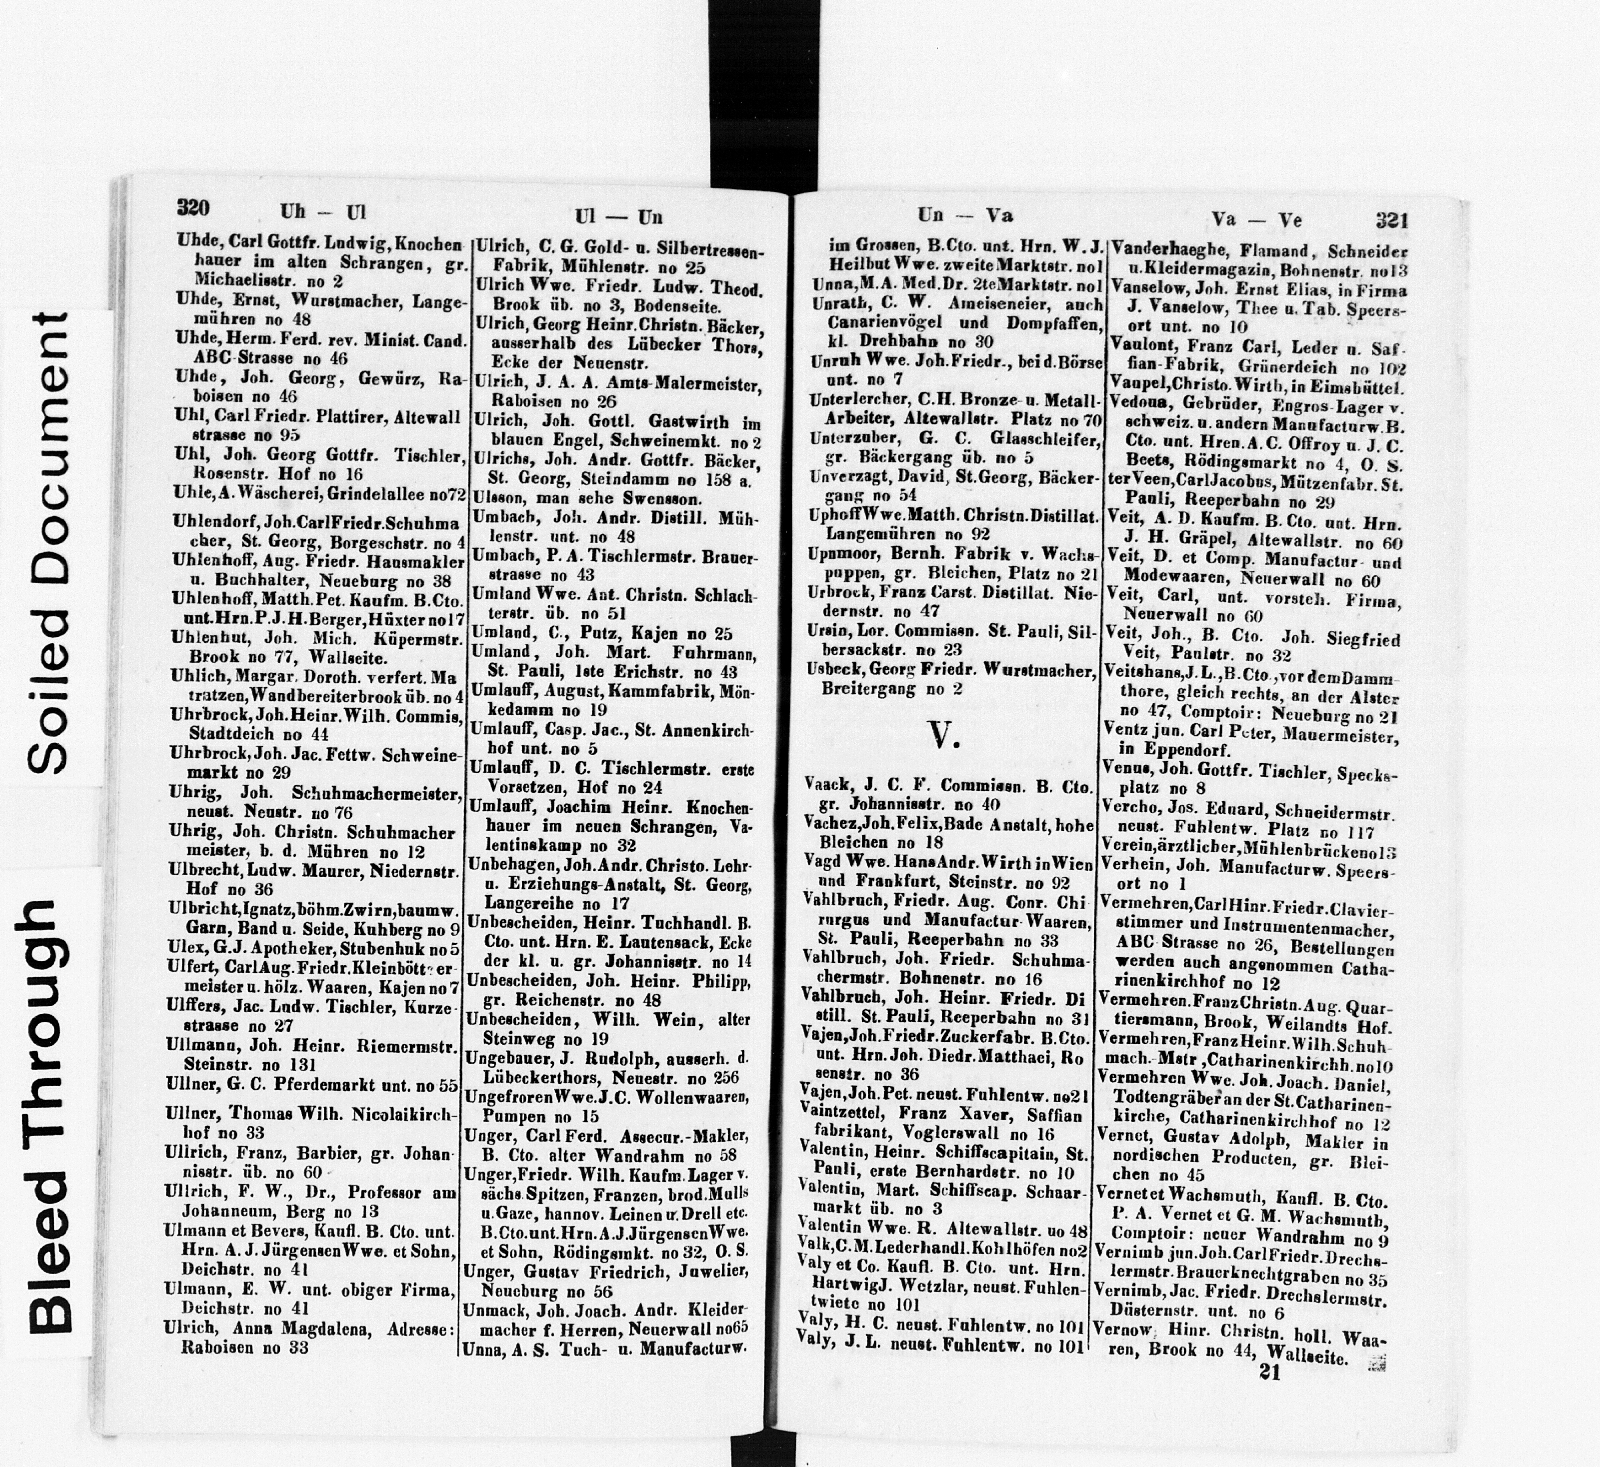 Soiled Document
Bleed Through
320
Uh — Ul
Uhde, Carl Gottfr. Ludwig, Knochen
hauer im alten Schrangen, gr.
Michaelisstr. no 2
Uhde, Ernst, Wurstmacher, Lange-
mühren no 48
Uhde, Herm. Ferd. rev. Minist. Cand.
ABC Strasse no 46
Uhde, Joh. Georg, Gewürz, Ra-
boisen no 46
Uhl, Carl Friedr. Plattirer, Altewall
strasse no 95
Uhl, Joh. Georg Gottfr. Tischler,
Rosenstr. Hof no 16
Uhle, A. Wäscherei, Grindelallee no72
Uhlendorf, Joh.CarlFriedr.Schuhma
cher, St. Georg, Borgeschstr. no 4
Uhlenhoff, Aug. Friedr. Hausmakler
u. Buchhalter, Neueburg no 38
Uhlenhoff, Matth.Pet. Kaufm. B.Cto.
unt.Hrn.P.J.H.Berger,Hüxter no17
Uhlenhut, Joh. Mich. Küpermstr.
Brook no 77, Wallseite.
Uhlich, Margar. Doroth. verfert. Ma
tratzen,Wandbereiterbrook üb. no 4
Uhrbrock,Joh.Heinr.Wilh. Commis,
Stadtdeich no 44
Uhrbrock,Joh. Jac. Fettw. Schweine-
markt no 29
Uhrig, Joh. Schuhmachermeister,
neust. Neustr. no 76
Uhrig, Joh. Christn. Schuhmacher
meister, b. d. Mühren no 12
Ulbrecht, Ludw. Maurer, Niedernstr.
Hof no 36
Ulbricht,Ignatz,böhm.Zwirn,baumw.
Garn, Band u. Seide, Kuhberg no 9
Ulex, G.J. Apotheker, Stubenhuk no 5
Ulfert, CarlAug.Friedr.Kleinböttcher
meister u. hölz. Waaren, Kajen no 7
Ulffers, Jac. Ludw. Tischler, Kurze-
strasse no 27
Ullmann, Joh. Heinr. Riemermstr.
Steinstr. no 131
Ullner, G. C. Pferdemarkt unt. no 55
Ullner, Thomas Wilh. Nicolaikirch-
hof no 33
Ullrich, Franz, Barbier, gr. Johan
nisstr. üb. no 60
Ullrich, F. W., Dr., Professor am
Johanneum, Berg no 13
Ulmann et Bevers, Kaufl. B. Cto. unt.
Hrn. A. J. JürgensenWwe. et Sohn,
Deichstr. no 41
Ulmann, E. W. unt. obiger Firma,
Deichstr. no 41
Ulrich, Anna Magdalena, Adresse:
Raboisen no 33
Ul — Un
Ulrich, C. G. Gold- u. Silbertressen-
Fabrik, Mühlenstr. no 25
Ulrich Wwe. Friedr. Ludw. Theod.
Brook üb. no 3, Bodenseite.
Ulrich, Georg Heinr.Christn. Bäcker,
ausserhalb des Lübecker Thors,
Ecke der Neuenstr.
Ulrich, J. A. A. Amts-Malermeister,
Raboisen no 26
Ulrich, Joh. Gottl. Gastwirth im
blauen Engel, Schweinemkt. no 2
Ulrichs, Joh. Andr. Gottfr. Bäcker,
St. Georg, Steindamm no 158 a.
Ulsson, man sehe Swensson.
Umbach, Joh. Andr. Distill. Müh-
lenstr. unt. no 48
Umbach, P. A. Tischlermstr. Brauer-
strasse no 43
Umland Wwe. Ant. Christn. Schlach
terstr. üb. no 51
Umland, C., Putz, Kajen no 25
Umland, Joh. Mart. Fuhrmann,
St. Pauli, 1ste Erichstr. no 43
Umlauff, August, Kammfabrik, Mön-
kedamm no 19
Umlauff, Casp. Jac., St. Annenkirch-
hof unt. no 5
Umlauff, D. C. Tischlermstr. erste
Vorsetzen, Hof no 24
Umlauff, Joachim Heinr. Knochen-
hauer im neuen Schrangen, Va-
lentinskamp no 32
Unbehagen, Joh.Andr. Christo. Lehr-
u. Erziehungs-Anstalt, St. Georg,
Langereihe no 17
Unbescheiden, Heinr. Tuchhandl. B.
Cto. unt. Hrn. E. Lautensack, Ecke
der kl. u. gr. Johannisstr. no 14
Unbescheiden, Joh. Heinr. Philipp,
gr. Reichenstr. no 48
Unbescheiden, Wilh. Wein, alter
Steinweg no 19
Ungebauer, J. Rudolph, ausserh. d.
Lübeckerthors, Neuestr. no 256
UngefrorenWwe.J.C. Wollenwaaren,
Pumpen no 15
Unger, Carl Ferd. Assecur.-Makler,
B. Cto. alter Wandrahm no 58
Unger,Friedr. Wilh. Kaufm. Lager v.
sächs. Spitzen, Franzen, brod.Mulls
u.Gaze, hannov. Leinen u. Drell etc.
B.Cto.unt.Hrn.A.J.JürgensenWwe.
et Sohn, Rödingsmkt. no 32, O. S.
Unger, Gustav Friedrich, Juwelier,
Neueburg no 56
Unmack, Joh. Joach. Andr. Kleider
macher f. Herren, Neuerwall no65
Unna, A. S. Tuch- u. Manufacturw.
Un — Va
im Grossen, B.Cto. unt. Hrn. W. J.
Heilbut Wwe. zweite Marktstr. no1
Unna,M.A. Med.Dr. 2te Marktstr. no1
Unrath, C. W. Ameiseneier, auch
Canarienvögel und Dompfaffen,
kl. Drehbahn no 30
Unruh Wwe. Joh.Friedr., bei d. Börse
unt. no 7
Unterlercher, C.H. Bronze- u. Metall-
Arbeiter, Altewallstr. Platz no 70
Unterzuber, G. C. Glasschleifer,
gr. Bäckergang üb. no 5
Unverzagt, David, St.Georg, Bäcker-
gang no 54
UphoffWwe.Matth. Christn.Distillat.
Langemühren no 92
Upnmoor, Bernh. Fabrik v. Wachs-
puppen, gr. Bleichen, Platz no 21
Urbrock, Franz Carst. Distillat. Nie-
dernstr. no 47
Ursin, Lor. Commissn. St. Pauli, Sil-
bersackstr. no 23
Usbeck, Georg Friedr. Wurstmacher,
Breitergang no 2
V.
Vaack, J. C. F. Commissn. B. Cto.
gr. Johannisstr. no 40
Vachez,Joh.Felix,Bade Anstalt, hohe
Bleichen no 18
Vagd Wwe. HansAndr. Wirth in Wien
und Frankfurt, Steinstr. no 92
Vahlbruch, Friedr. Aug. Conr. Chi
rurgus und Manufactur-Waaren,
St. Pauli, Reeperbahn no 33
Vahlbruch, Joh. Friedr. Schuhma-
chermstr. Bohnenstr. no 16
Vahlbruch, Joh. Heinr. Friedr. Di
still. St. Pauli, Reeperbahn no 31
Vajen,Joh.Friedr.Zuckerfabr. B.Cto.
unt. Hrn. Joh. Diedr. Matthaei, Ro
senstr. no 36
Vajen,Joh.Pet. neust. Fuhlentw. no21
Vaintzettel, Franz Xaver, Saffian
fabrikant, Voglerswall no 16
Valentin, Heinr. Schiffscapitain, St.
Pauli, erste Bernhardstr. no 10
Valentin, Mart. Schiffscap. Schaar-
markt üb. no 3
Valentin Wwe. R. Altewallstr. uo 48
Valk,C.M.Lederhandl.Kohlhöfen no2
Valy et Co. Kaufl. B. Cto. unt. Hrn.
HartwigJ. Wetzlar, neust. Fuhlen-
twiete no 101
Valy, H. C. neust. Fuhlentw. no 101
Valy, J. L. neust. Fuhlentw. no 101
Va — Ve
321
Vanderhaeghe, Flamand, Schneider
u.Kleidermagazin, Bohnenstr. no13
Vanselow, Joh. Ernst Elias, in Firma
J. Vanselow, Thee u. Tab. Speers-
ort unt. no 10
Vaulont, Franz Carl, Leder u. Saf-
fian-Fabrik, Grünerdeich no 102
Vaupel,Christo. Wirth, in Eimsbüttel.
Vedoua, Gebrüder, Engros-Lager v.
schweiz. u. andern Manufacturw.B.
Cto. unt. Hren. A. C. Offroy u. J. C.
Beets, Rödingsmarkt no 4, O. S.
terVeen,CarlJacobus, Mützenfabr. St.
Pauli, Reeperbahn no 29
Veit, A. D. Kaufm. B. Cto. unt. Hrn.
J. H. Gräpel, Altewallstr. no 60
Veit, D. et Comp. Manufactur- und
Modewaaren, Neuerwall no 60
Veit, Carl, unt. vorsteh. Firma,
Neuerwall no 60
Veit, Joh., B. Cto. Joh. Siegfried
Veit, Paulstr. no 32
Veitshans,J.L.,B.Cto.,vor dem Damm
thore, gleich rechts, an der Alster
no 47, Comptoir: Neueburg no 21
Ventz jun. Carl Peter, Mauermeister,
in Eppendorf.
Venus, Joh. Gottfr. Tischler, Specks-
platz no 8
Vercho, Jos. Eduard, Schneidermstr.
neust. Fuhlentw. Platz no 117
Verein,ärztlicher,Mühlenbrücken­o13
Verhein, Joh. Manufacturw. Speers-
ort no 1
Vermehren,CarlHinr.Friedr.Clavier-
stimmer und Instrumentenmacher,
ABC-Strasse no 26, Bestellungen
werden auch angenommen Catha-
rinenkirchhof no 12
Vermehren.FranzChristn.Aug. Quar-
tiersmann, Brook, Weilandts Hof.
Vermehren,FranzHeinr.Wilh.Schuh
mach.-Mstr,Catharinenkirchh.no10
Vermehren Wwe. Joh. Joach. Daniel,
Todtengräber an der St.Catharinen-
kirche, Catharinenkirchhof no 12
Vernet, Gustav Adolph, Makler in
nordischen Producten, gr. Blei-
chen no 45
Vernet et Wachsmuth, Kaufl. B. Cto.
P. A. Vernet et G. M. Wachsmuth,
Comptoir: neuer Wandrahm no 9
Vernimb jun.Joh.CarlFriedr.Drechs-
lermstr.Brauerknechtgraben no 35
Vernimb, Jac. Friedr. Drechslermstr.
Düsternstr. unt. no 6
Vernow, Hinr. Christn. holl. Waa-
ren, Brook no 44, Wallseite.
21